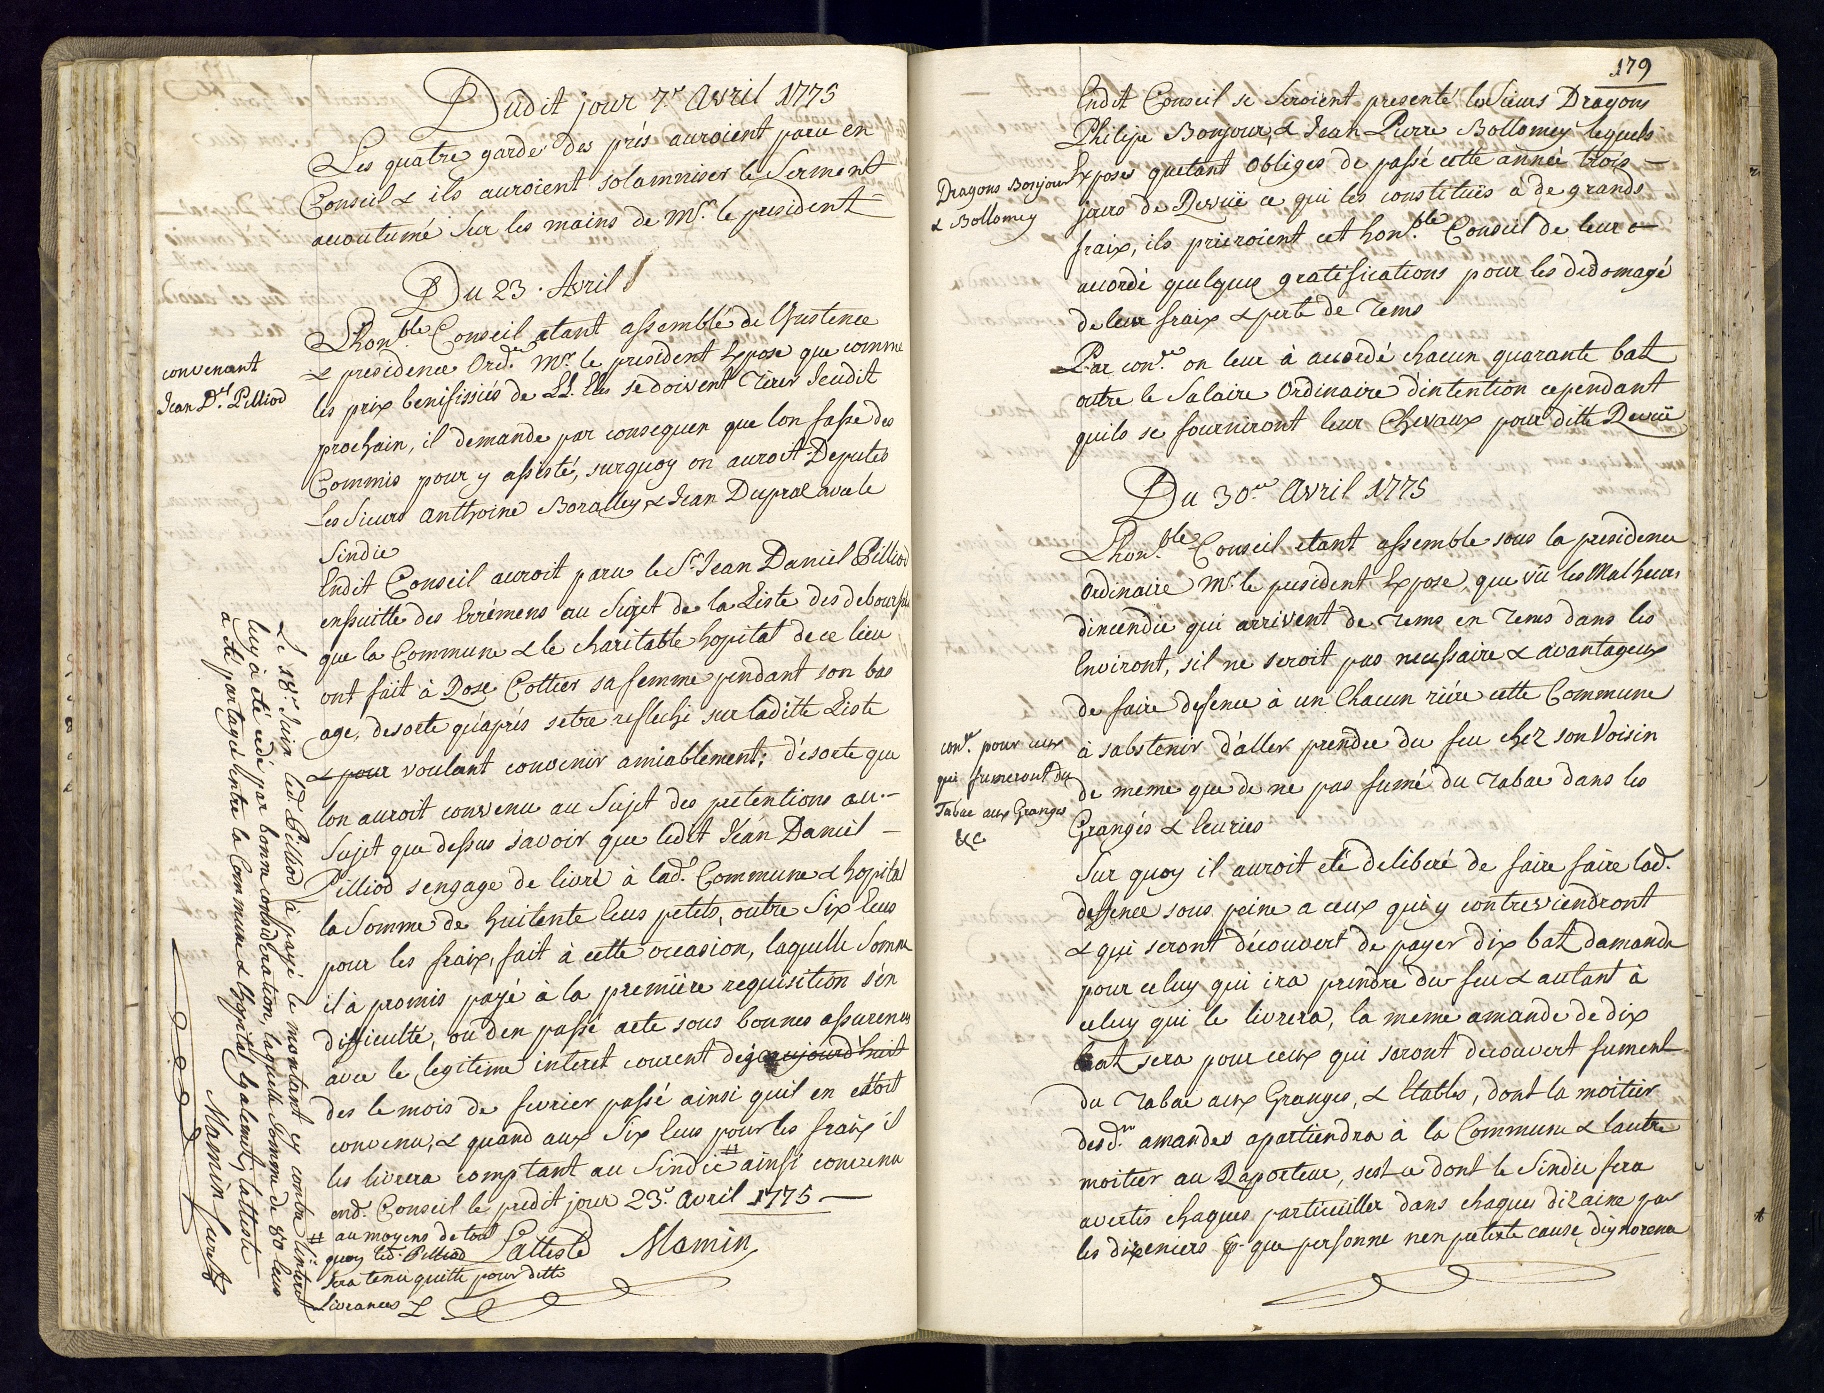 Dudit jour 7.e Avril 1775
Les quatre garde des prés auroient paru en
Conseil & ils auroient solamniser le Serment
accoutumé sur les mains de Mr. le president
Du 23. Avril
Lhon.ble Conseil etant assemblé de l'Justence
& presidence Ord.re Mr. le president Expose que comme
les prix benifissiés de LL. EEs se doivent Tirer Jeudit
prochain, il demande par consequen que lon fasse des
Commis pour y assisté, surquoy on auroit Deputés
les Sieurs Anthoine Boralley & Jean Dupral avec le
Sindic
convenant
Jean D.el Pilliod
Endit Conseil auroit paru le Sr. Jean Daniel Pilliod
enssuitte des Errémens au Sujet de la Liste des deboursés
que la Commune & le charitable hopital de ce lieu
ont fait à Rose Cottier sa femme pendant son bas
age, desorte qu'aprés setre reflechi sur laditte Liste
& pour voulant convenir amiablement; d'ésorte que
lon auroit convenu au Sujet des pretentions au
Sujet que dessus savoir que ledit Jean Daniel
Pilliod s'engage de livré à lad.e Commune & hopital
la Somme de huitente Ecus petits, outre Six Ecus
pour les fraix, fait à cette occasion, laquelle Somme
il à promis payé à la premiére requisition s'en
difficulté, ou d'en passé acte sous bonnes assurences
avec le legitime interet courent dejà aujourd'huit
des le mois de fevrier passé ainsi quil en estoit
convenu, & quand aux Six Ecus pour les fraix il
les livrera comptant au Sindic # ainsi convenu
end. Conseil le predit jour 23.e Avril 1775
# au moyens de tout
quoy led. Pilliod
sera tenu quitte pour ditte
Livrances
L'attesté Mamin
Le 18.e Juin led. Pilliod à payé le montant cy contre l'interet
luy à été cedé par bonne consideration, laquelle somme de 80 Ecus
a été partagé entre la Commune & l'hopital Egalement, l'atteste
Mamin Curial
179
Endit Conseil se seroient presenté les Sieurs Dragons
Philipe Bonjour, & Jean Pierre Bollomey lequels
Exposes quetant Obligés de passé cette année trois
jours de Revuë ce qui les constituës à de grands
fraix, ils prieroient cet hon.ble Conseil de leur
accordé quelques gratifications pour les dedomagé
de leur fraix & perte de Tems
Dragons Bonjour
& Bollomey
Par con.re on leur à accordé chacun quarante batz
outre le Salaire Ordinaire d'intention cependant
quils se fourniront leur Chevaux pour ditte Revuë
Du 30.e Avril 1775
Lhon.ble Conseil etant assemblé sous la presidence
ordinaire Mr. le president Expose, que vû les Malheurs
d'incendie qui arrivent de Tems en Tems dans les
Environt, s'il ne seroit pas necessaire & avantageux
de faire defence à un Chacun riére cette Commune
à sabstenir d'aller prendre du feu chez son Voisin
de meme que de ne pas fumé du Tabac dans les
Grangés & Ecuries
con.re pour ceux
qui fumeront du
Tabac aux Granges
&c
Sur quoy il auroit eté deliberé de faire faire lad.e
deffence sous peine a ceux qui y contreviendront
& qui seront découvert de payer dix batz d'amande
pour celuy qui ira prendre du feu & autant à
celuy qui le livrera, la meme amande de dix
batz sera pour ceux qui seront decouvert fument
du Tabac aux Granges, & Etables, dont la moitier
desd.tes amandes apartiendra à la Commune & lautre
moitier au Raporteur, sest ce dont le Sindic fera
avertis chaques particuillier dans chaques dizaine par
les dizeniers p.r que personne n'en pretexte cause d'ignorence